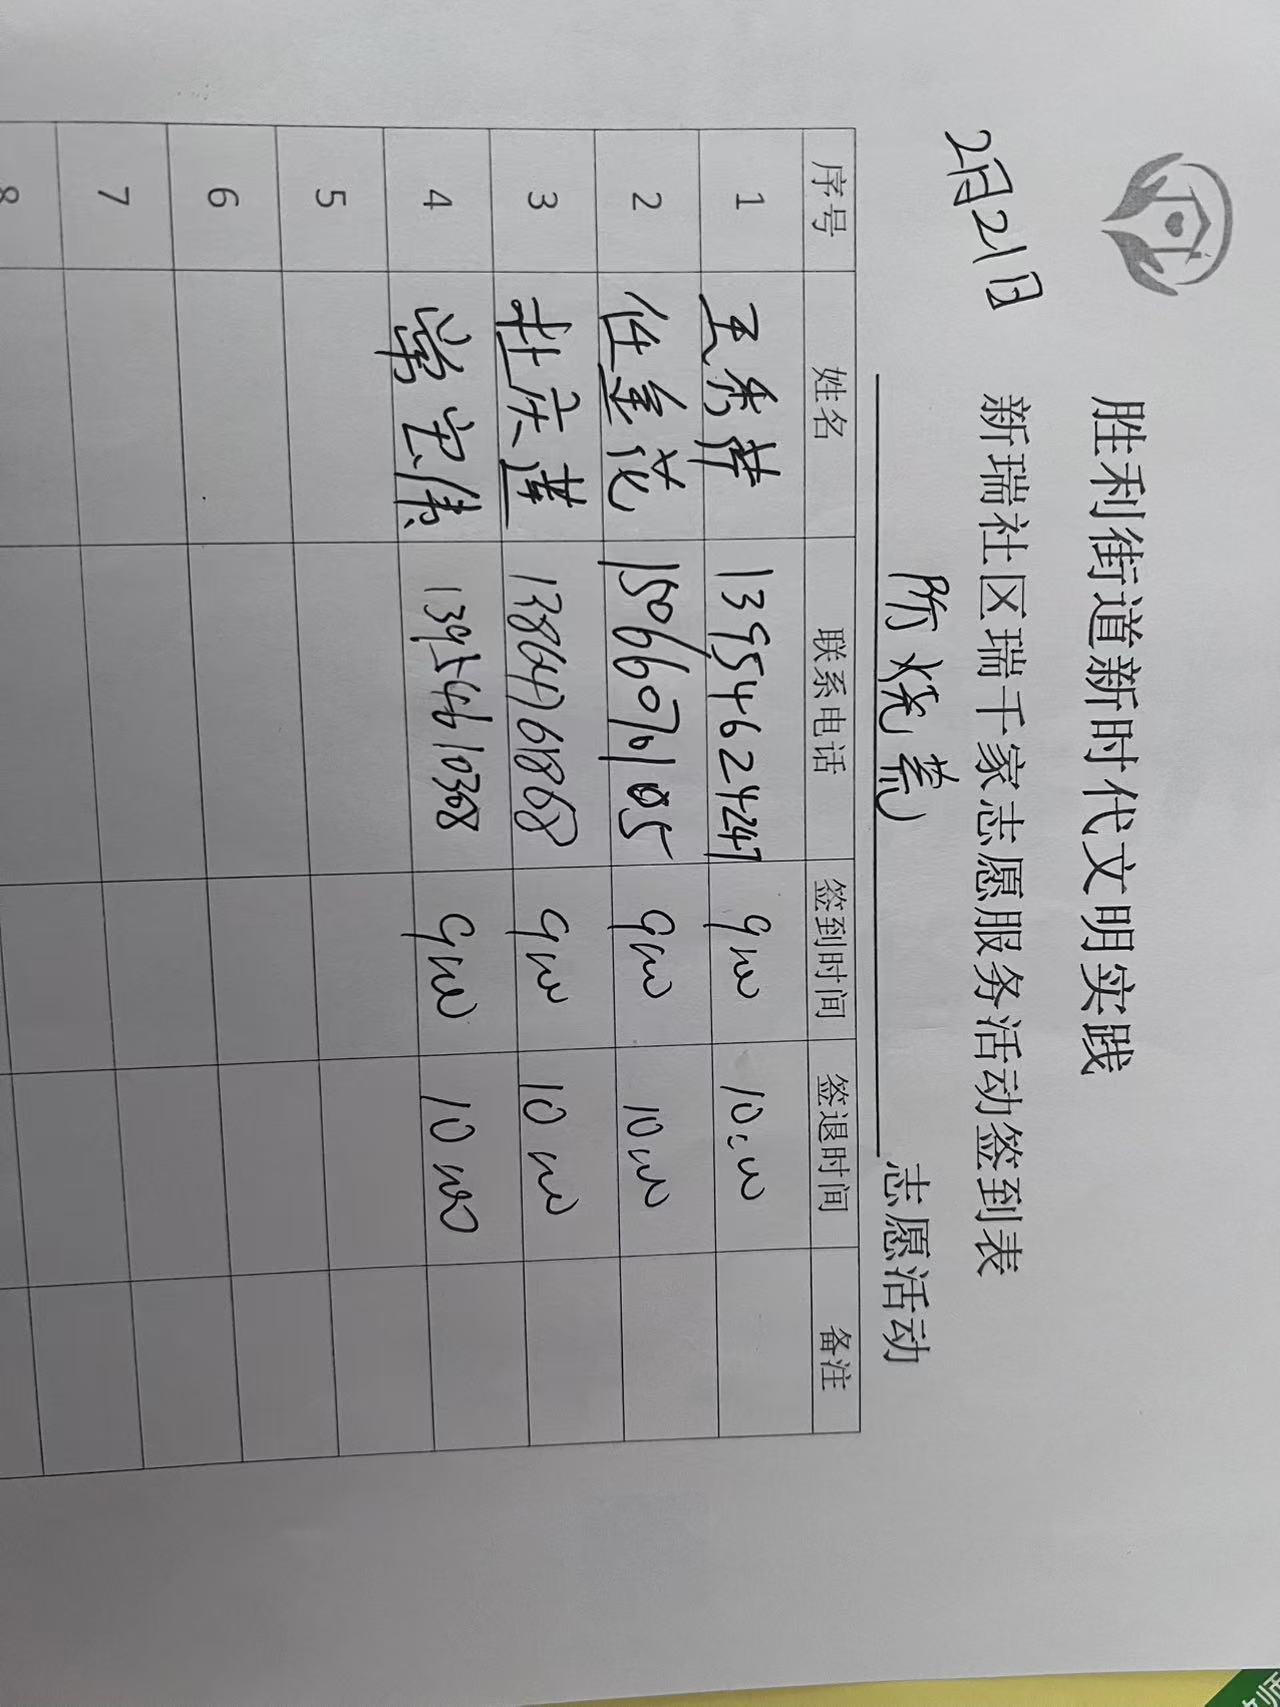 胜利街道新时代文明实践
新瑞社区瑞千家志愿服务活动签到表
2月21日
防烧荒 志愿活动
序号 姓名 联系电话 签到时间 签退时间 备注
1 王秀萍 13954624247 9:00 10:00
2 任金花 15066070105 9:00 10:00
3 杜庆莲 13864768868 9:00 10:00
4 常宝伟 13954610368 9:00 10:00
5
6
7
8